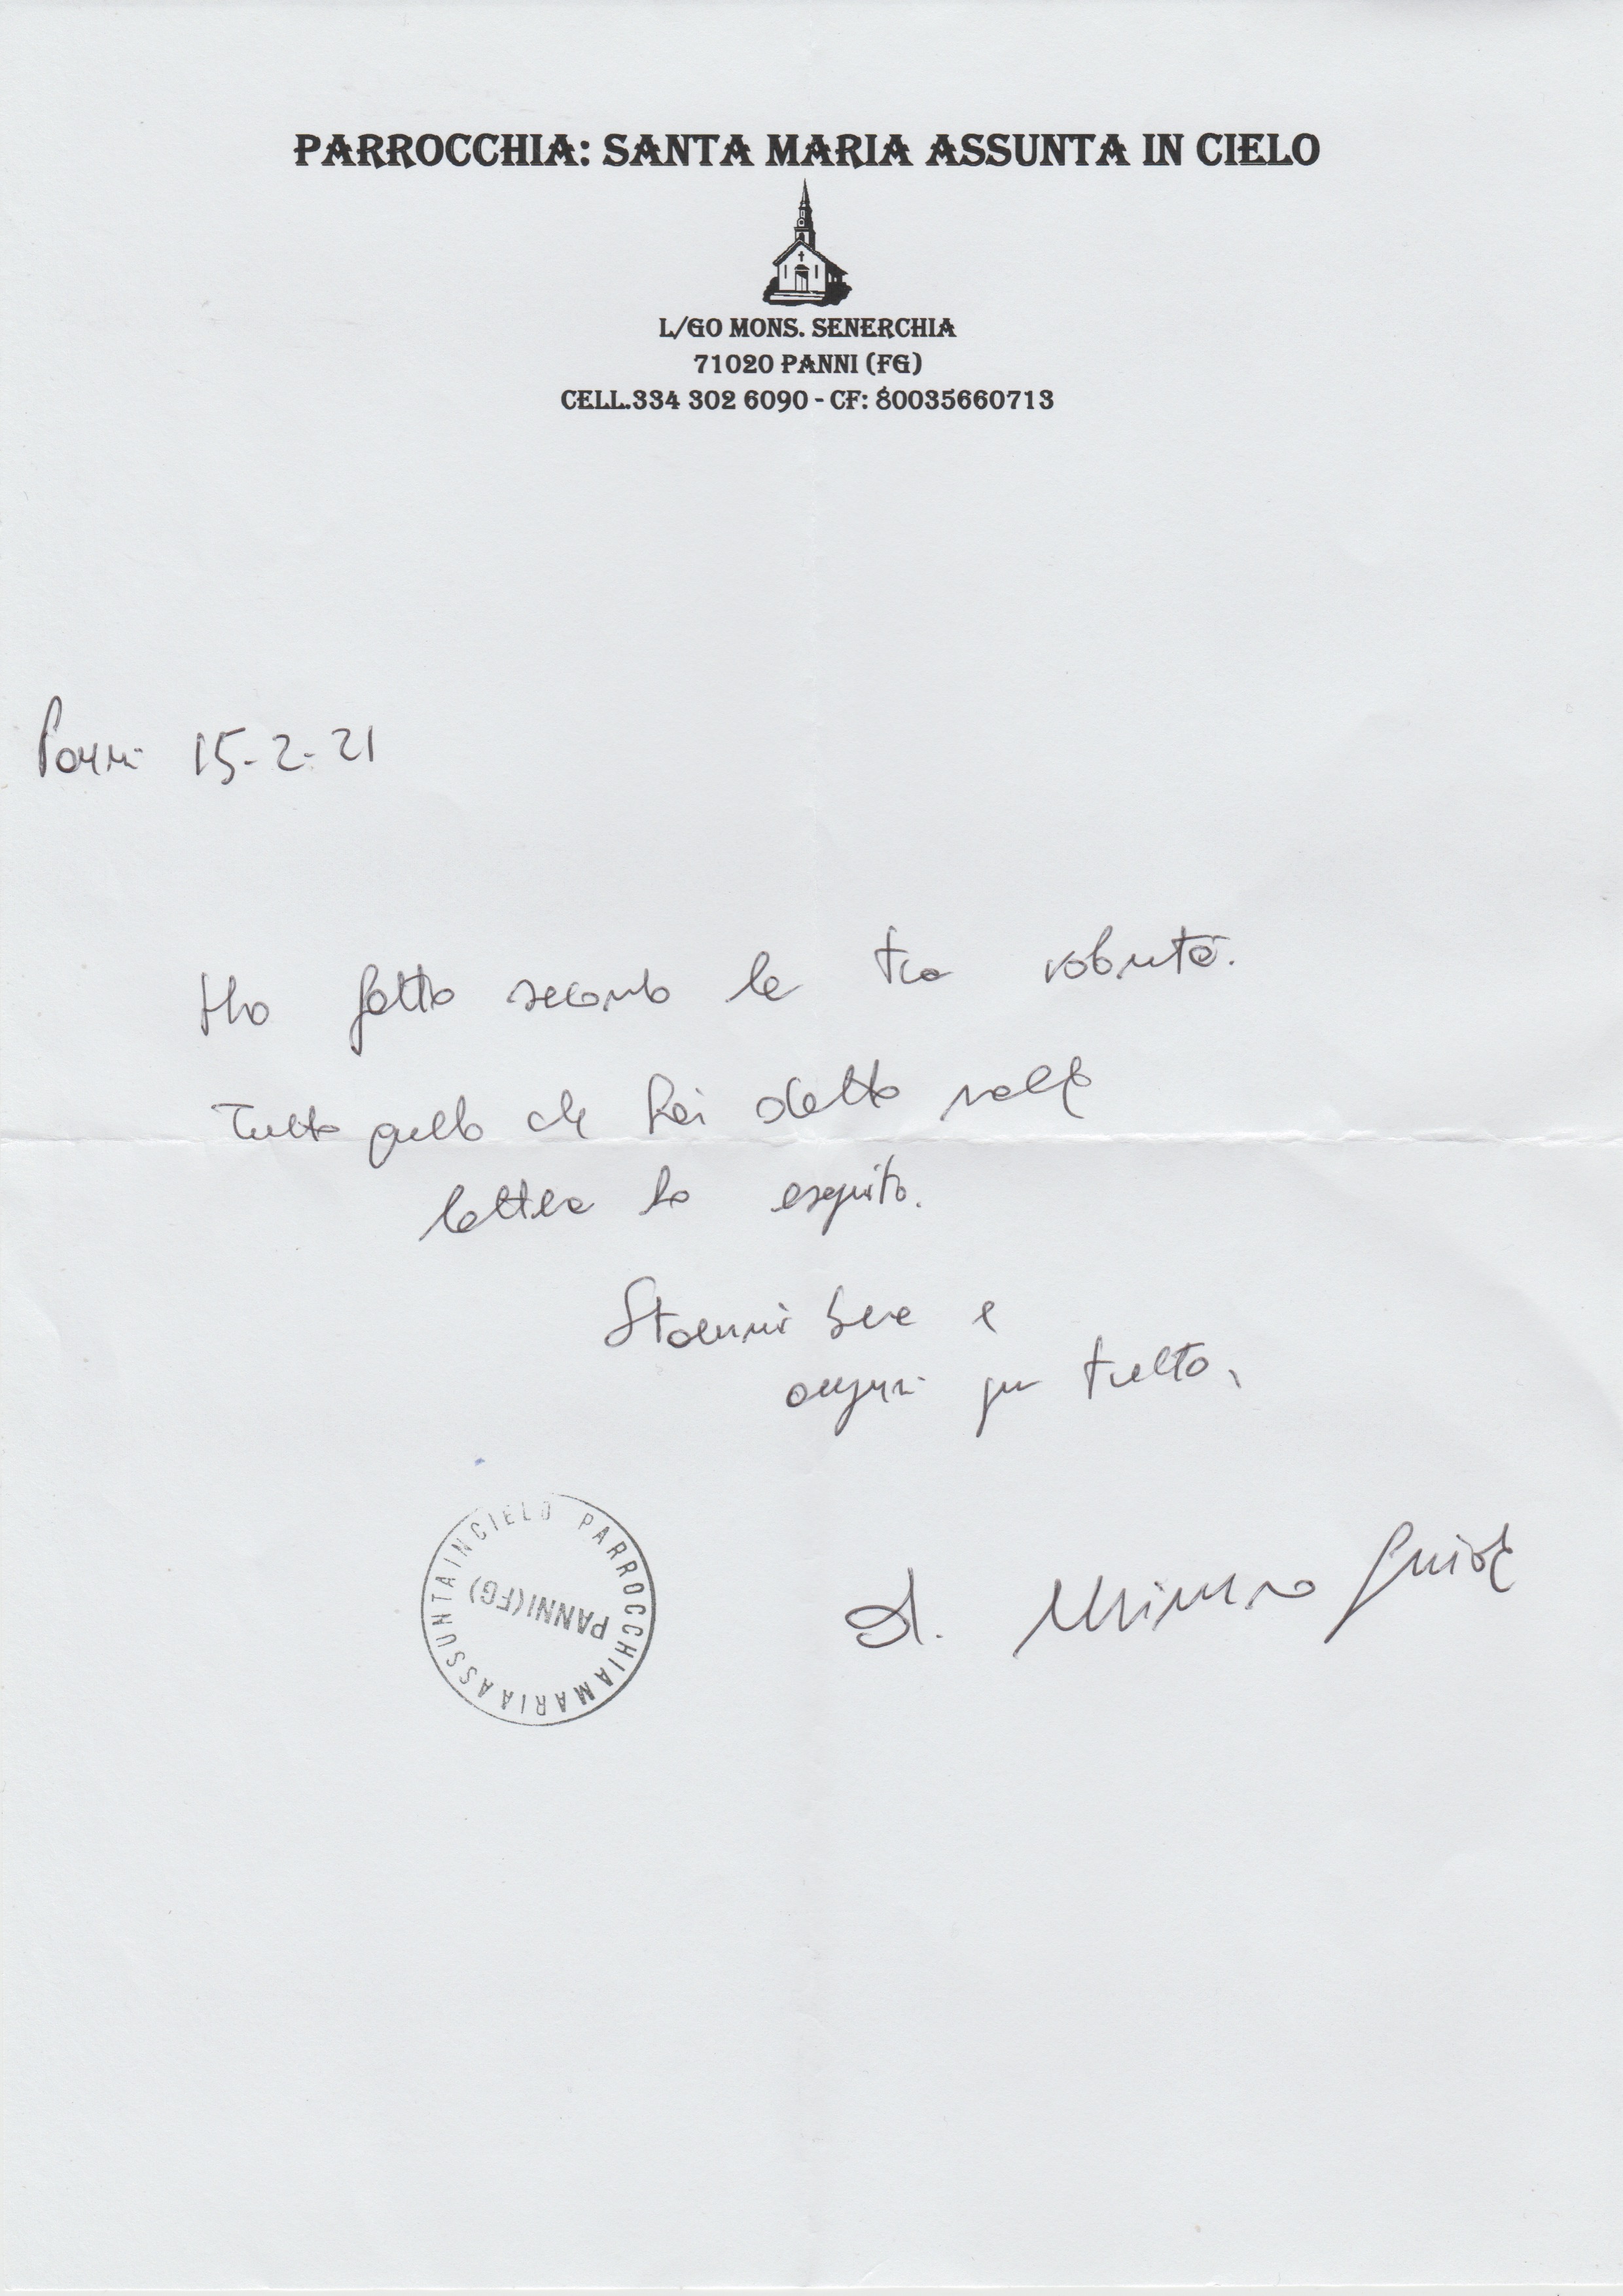 PARROCCHIA: SANTA MARIA ASSUNTA IN CIELO
L/GO MONS. SENERCHIA
71020 PANNI (FG)
CELL.334 302 6090 - CF: 80035660713
Panni 15-2-21
Ho fatto secondo la tua volontà.
Tutto quello che hai detto nella
lettera ho eseguito.
Stammi bene e
auguri per tutto.
PARROCCHIA MARIA ASSUNTA IN CIELO
PANNI (FG)
D. Mimmo